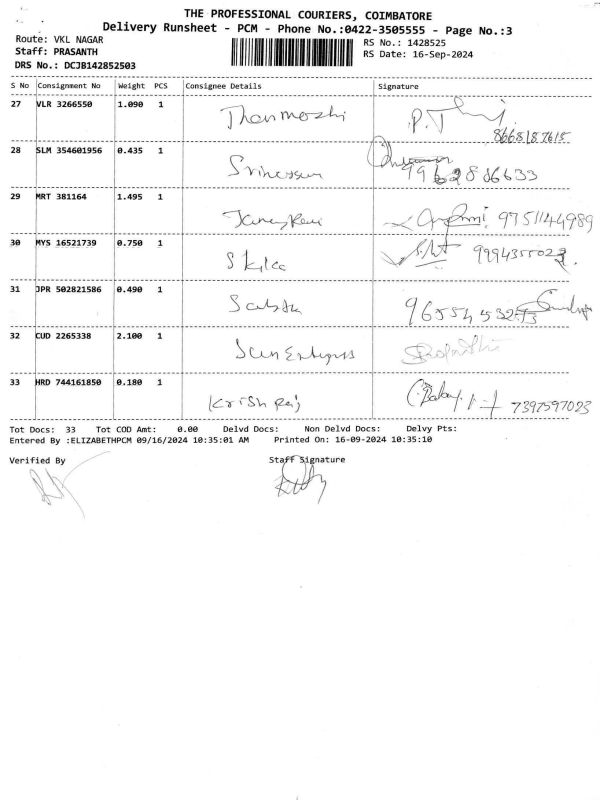 THE PROFESSIONAL COURIERS, COIMBATORE
Delivery Runsheet - PCM - Phone No.:0422-3505555 - Page No.:3
Route: VKL NAGAR
RS No.: 1428525
Staff: PRASANTH
RS Date: 16-Sep-2024
DRS No.: DCJB142852503
S No Consignment No Weight PCS Consignee Details Signature
27 VLR 3266550 1.090 1 Thenmozhi P.T
8668187615
28 SLM 354601956 0.435 1
29 MRT 381164 1.495 1 9751144989
30 MYS 16521739 0.750 1
31 JPR 502821586 0.490 1
32 CUD 2265338 2.100 1
33 HRD 744161850 0.180 1 Krish Raj 7397597023
Tot Docs: 33 Tot COD Amt: 0.00 Delvd Docs: Non Delvd Docs: Delvy Pts:
Entered By :ELIZABETHPCM 09/16/2024 10:35:01 AM Printed On: 16-09-2024 10:35:10
Verified By Staff Signature